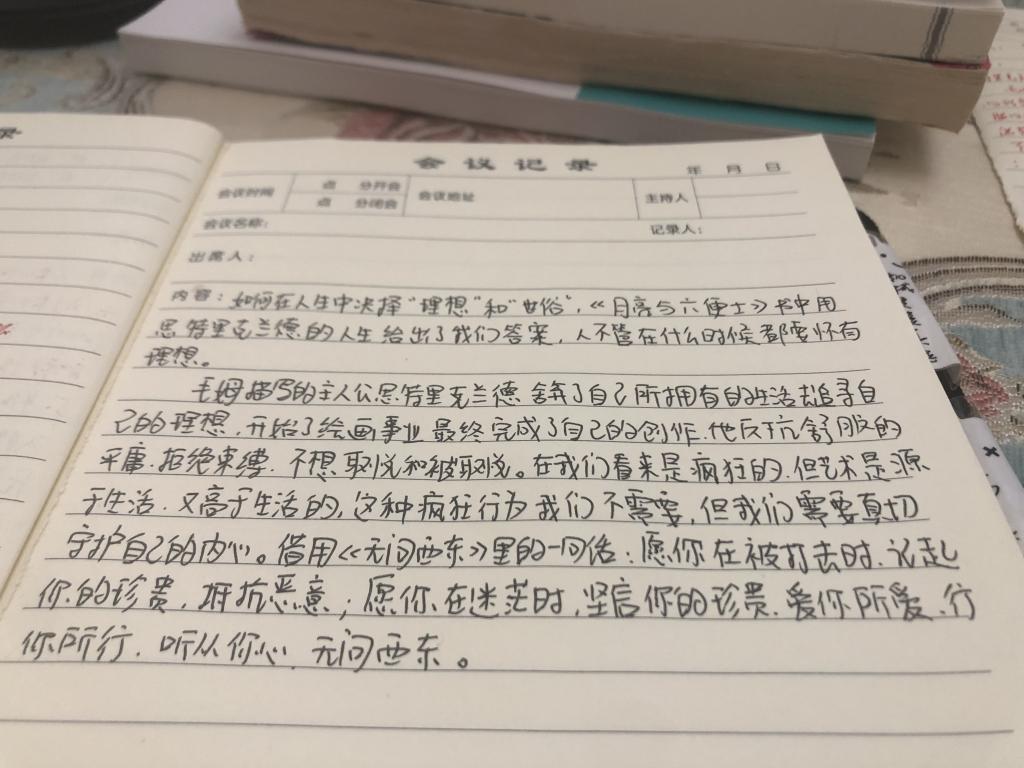 录
会议记录
年 月 日
会议时间 点 分开会 会议地址 主持人
点 分闭会
会议名称: 记录人:
出席人:
内容:如何在人生中决择"理想"和"世俗",《月亮与六便士》书中用
思特里克兰德的人生给出了我们答案,人不管在什么时候都要怀有
理想。
毛姆描写的主人公思特里克兰德舍弃了自己所拥有的生活去追寻自
己的理想,开始了绘画事业最终完成了自己的创作.他反抗舒服的
平庸.拒绝束缚.不想取悦和被取悦。在我们看来是疯狂的.但艺术是源
于生活.又高于生活的,这种疯狂行为我们不需要,但我们需要真切
守护自己的内心。借用《无问西东》里的一句话:愿你在被打击时.记起
你的珍贵.抵抗恶意;愿你在迷茫时,坚信你的珍贵.爱你所爱.行
你所行.听从你心.无问西东。